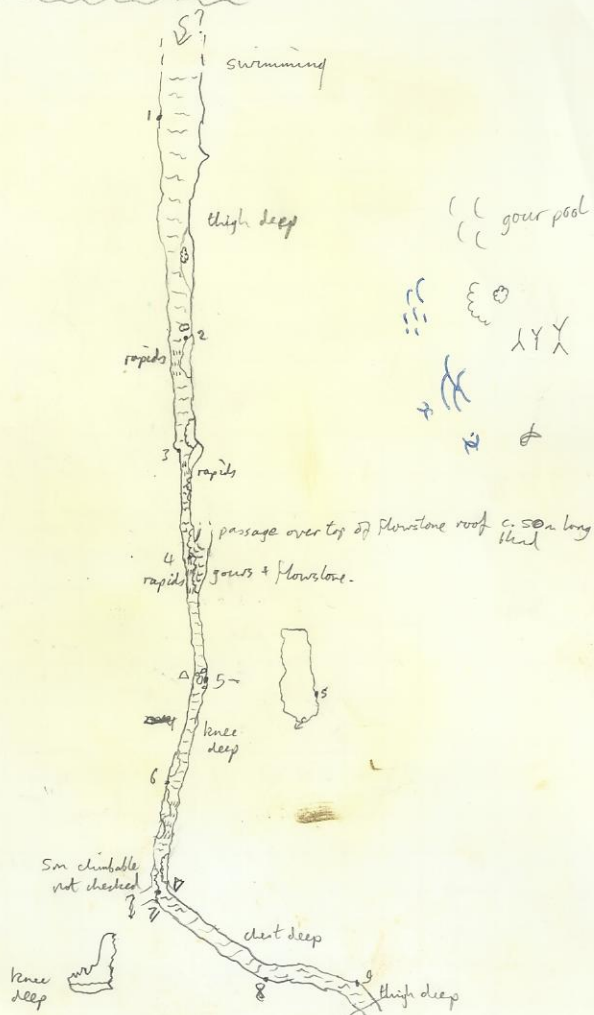 ?
swimming
1
thigh deep
gour pool
2
rapids
3
rapids
passage over top of flowstone roof c. 50m long
blind
4
rapids
gours + flowstone.
5
5
knee
deep
6
5m climbable
not checked
?
?
chest deep
knee
deep
8
9
thigh deep